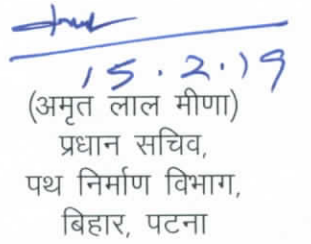 15.2.19
(अमृत लाल मीणा)
प्रधान सचिव,
पथ निर्माण विभाग,
बिहार, पटना